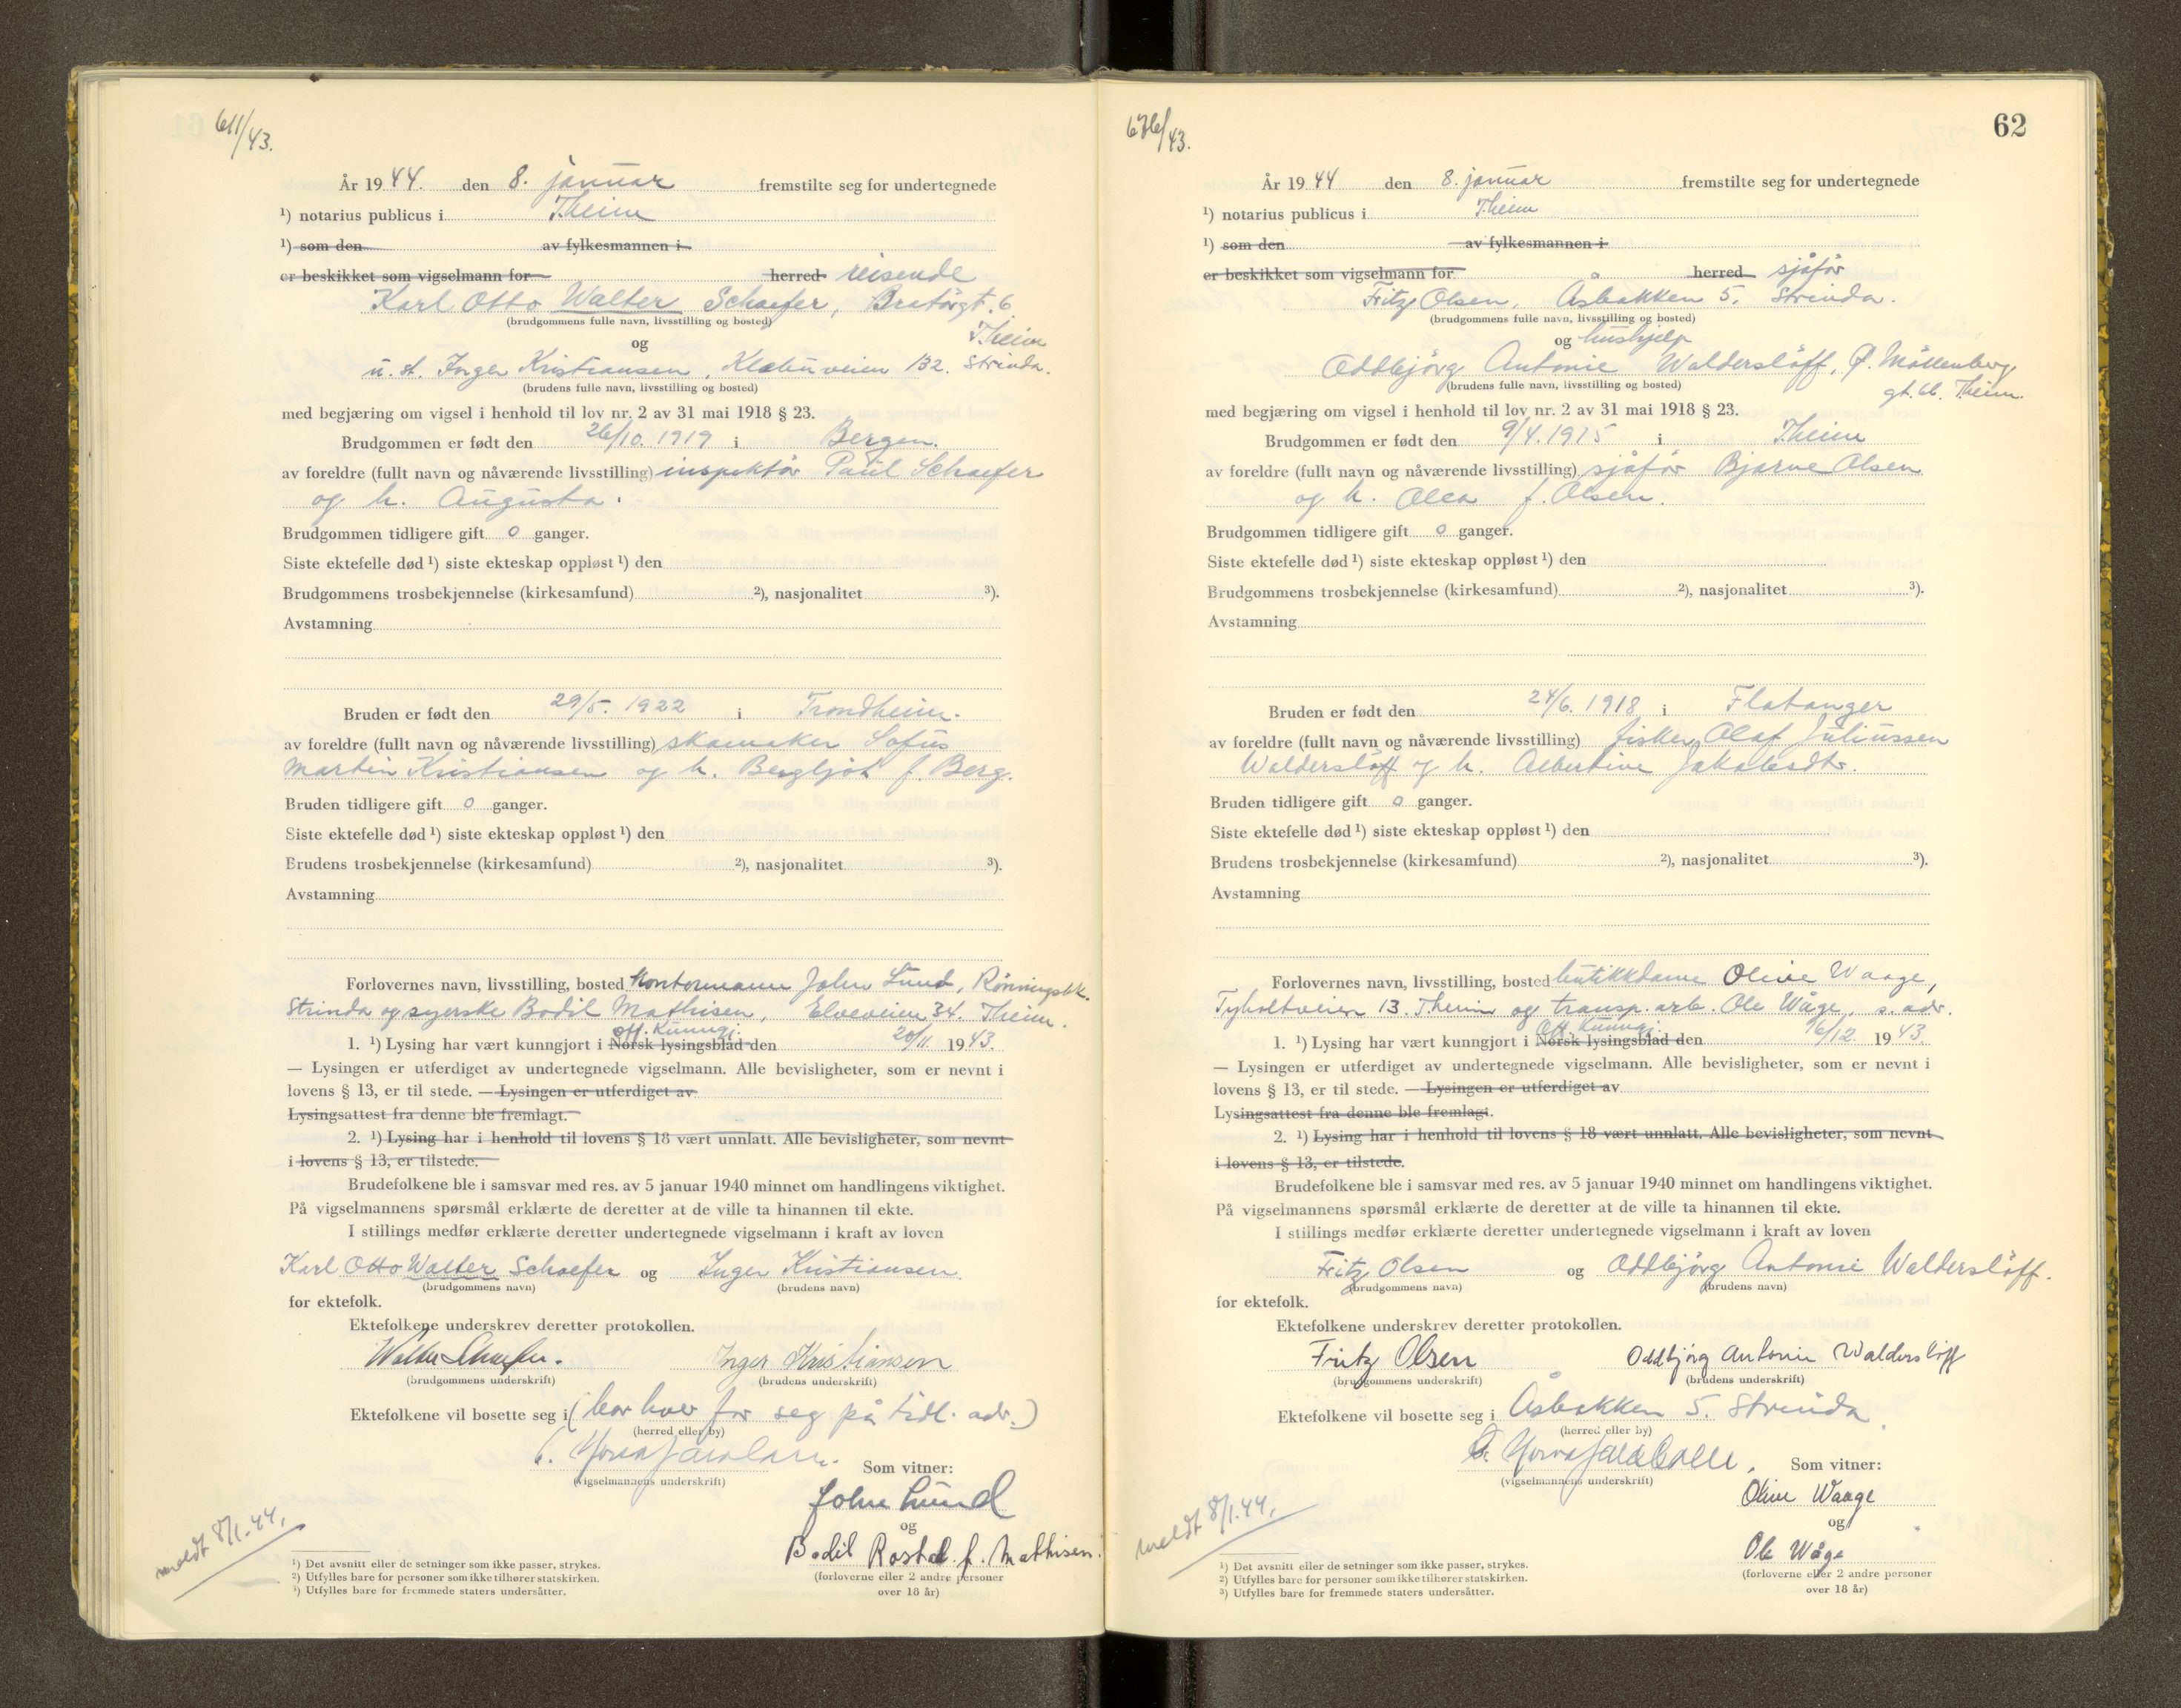 611/43.
År 1944. den 8. januar fremstilte seg for undertegnede
¹) notarius publicus i Theim
¹) som den av fylkesmannen i
er beskikket som vigselmann for herred reisende
Karl Otto Walter Schaefer, Bratörgt. 6
(brudgommens fulle navn, livsstilling og bosted)
Theim
og
u. st. Inger Kristiansen, Klæbuveien 132. Strinda.
(brudens fulle navn, livsstilling og bosted)
med begjæring om vigsel i henhold til lov nr. 2 av 31 mai 1918 § 23.
Brudgommen er født den 26/10. 1919 i Bergen.
av foreldre (fullt navn og nåværende livsstilling) inspektör Paul Schaefer
og h. Augusta.
Brudgommen tidligere gift 0 ganger.
Siste ektefelle død ¹) siste ekteskap oppløst ¹) den
Brudgommens trosbekjennelse (kirkesamfund) ²), nasjonalitet ³).
Avstamning
Bruden er født den 29/5. 1922 i Trondheim.
av foreldre (fullt navn og nåværende livsstilling) skomaker Sofus
Martin Kristiansen og h. Bergljot f. Berg.
Bruden tidligere gift 0 ganger.
Siste ektefelle død ¹) siste ekteskap oppløst ¹) den
Brudens trosbekjennelse (kirkesamfund) ²), nasjonalitet ³).
Avstamning
Forlovernes navn, livsstilling, bosted Kontormann John Lund,
Strinda og syerske Bodil Mathisen, Elveveien 34. Theim.
off. kunngj.
1. ¹) Lysing har vært kunngjort i Norsk lysingsblad den 20/11. 1943.
— Lysingen er utferdiget av undertegnede vigselmann. Alle bevisligheter, som er nevnt i
lovens § 13, er til stede. — Lysingen er utferdiget av
Lysingsattest fra denne ble fremlagt.
2. ¹) Lysing har i henhold til lovens § 18 vært unnlatt. Alle bevisligheter, som nevnt
i lovens § 13, er tilstede.
Brudefolkene ble i samsvar med res. av 5 januar 1940 minnet om handlingens viktighet.
På vigselmannens spørsmål erklærte de deretter at de ville ta hinannen til ekte.
I stillings medfør erklærte deretter undertegnede vigselmann i kraft av loven
Karl Otto Walter Schaefer og Inger Kristiansen.
(brudgommens navn) (brudens navn)
for ektefolk.
Ektefolkene underskrev deretter protokollen.
Walter Schaefer. Inger Kristiansen
(brudgommens underskrift) (brudens underskrift)
Ektefolkene vil bosette seg i (bor hver for seg på tidl. adr.)
(herred eller by)
(vigselmannens underskrift) Som vitner:
John Lund
og
Bodil Rostad f. Mathisen.
(forloverne eller 2 andre personer
over 18 år)
meldt 8/1.44.
¹) Det avsnitt eller de setninger som ikke passer, strykes.
²) Utfylles bare for personer som ikke tilhører statskirken.
³) Utfylles bare for fremmede staters undersåtter.
62
676/43.
År 1944 den 8. januar fremstilte seg for undertegnede
¹) notarius publicus i Theim
¹) som den av fylkesmannen i
er beskikket som vigselmann for herred sjåför
Fritz Olsen, Åsbakken 5. Strinda.
(brudgommens fulle navn, livsstilling og bosted)
og hushjelp
Oddbjörg Antonie Walderslöff, Ø. Möllenberg
(brudens fulle navn, livsstilling og bosted)
gt. 66. Theim.
med begjæring om vigsel i henhold til lov nr. 2 av 31 mai 1918 § 23.
Brudgommen er født den 9/4. 1915 i Theim
av foreldre (fullt navn og nåværende livsstilling) sjåför Bjarne Olsen
og h. Olea f. Olsen.
Brudgommen tidligere gift 0 ganger.
Siste ektefelle død ¹) siste ekteskap oppløst ¹) den
Brudgommens trosbekjennelse (kirkesamfund) ²), nasjonalitet ³).
Avstamning
Bruden er født den 24/6. 1918 i Flatanger
av foreldre (fullt navn og nåværende livsstilling) fisker Olaf Juliussen
Walderslöff og h. Albertine Jakobsdtr.
Bruden tidligere gift 0 ganger.
Siste ektefelle død ¹) siste ekteskap oppløst ¹) den
Brudens trosbekjennelse (kirkesamfund) ²), nasjonalitet ³).
Avstamning
Forlovernes navn, livsstilling, bosted butikkdame Olive Waage,
Tyholtveien 13. Theim og transp. arb. Ole Wåge, s. adr.
Off. kunngj.
1. ¹) Lysing har vært kunngjort i Norsk lysingsblad den 1943.
— Lysingen er utferdiget av undertegnede vigselmann. Alle bevisligheter, som er nevnt i
lovens § 13, er til stede. — Lysingen er utferdiget av
Lysingsattest fra denne ble fremlagt.
2. ¹) Lysing har i henhold til lovens § 18 vært unnlatt. Alle bevisligheter, som nevnt
i lovens § 13, er tilstede.
Brudefolkene ble i samsvar med res. av 5 januar 1940 minnet om handlingens viktighet.
På vigselmannens spørsmål erklærte de deretter at de ville ta hinannen til ekte.
I stillings medfør erklærte deretter undertegnede vigselmann i kraft av loven
Fritz Olsen og Oddbjörg Antonie Walderslöff.
(brudgommens navn) (brudens navn)
for ektefolk.
Ektefolkene underskrev deretter protokollen.
Fritz Olsen Oddbjörg Antonie Walderslöff
(brudgommens underskrift) (brudens underskrift)
Ektefolkene vil bosette seg i Åsbakken 5. Strinda
(herred eller by)
(vigselmannens underskrift) Som vitner:
Olive Waage
og
Ole Wåge
(forloverne eller 2 andre personer
over 18 år)
meldt 8/1.44.
¹) Det avsnitt eller de setninger som ikke passer, strykes.
²) Utfylles bare for personer som ikke tilhører statskirken.
³) Utfylles bare for fremmede staters undersåtter.